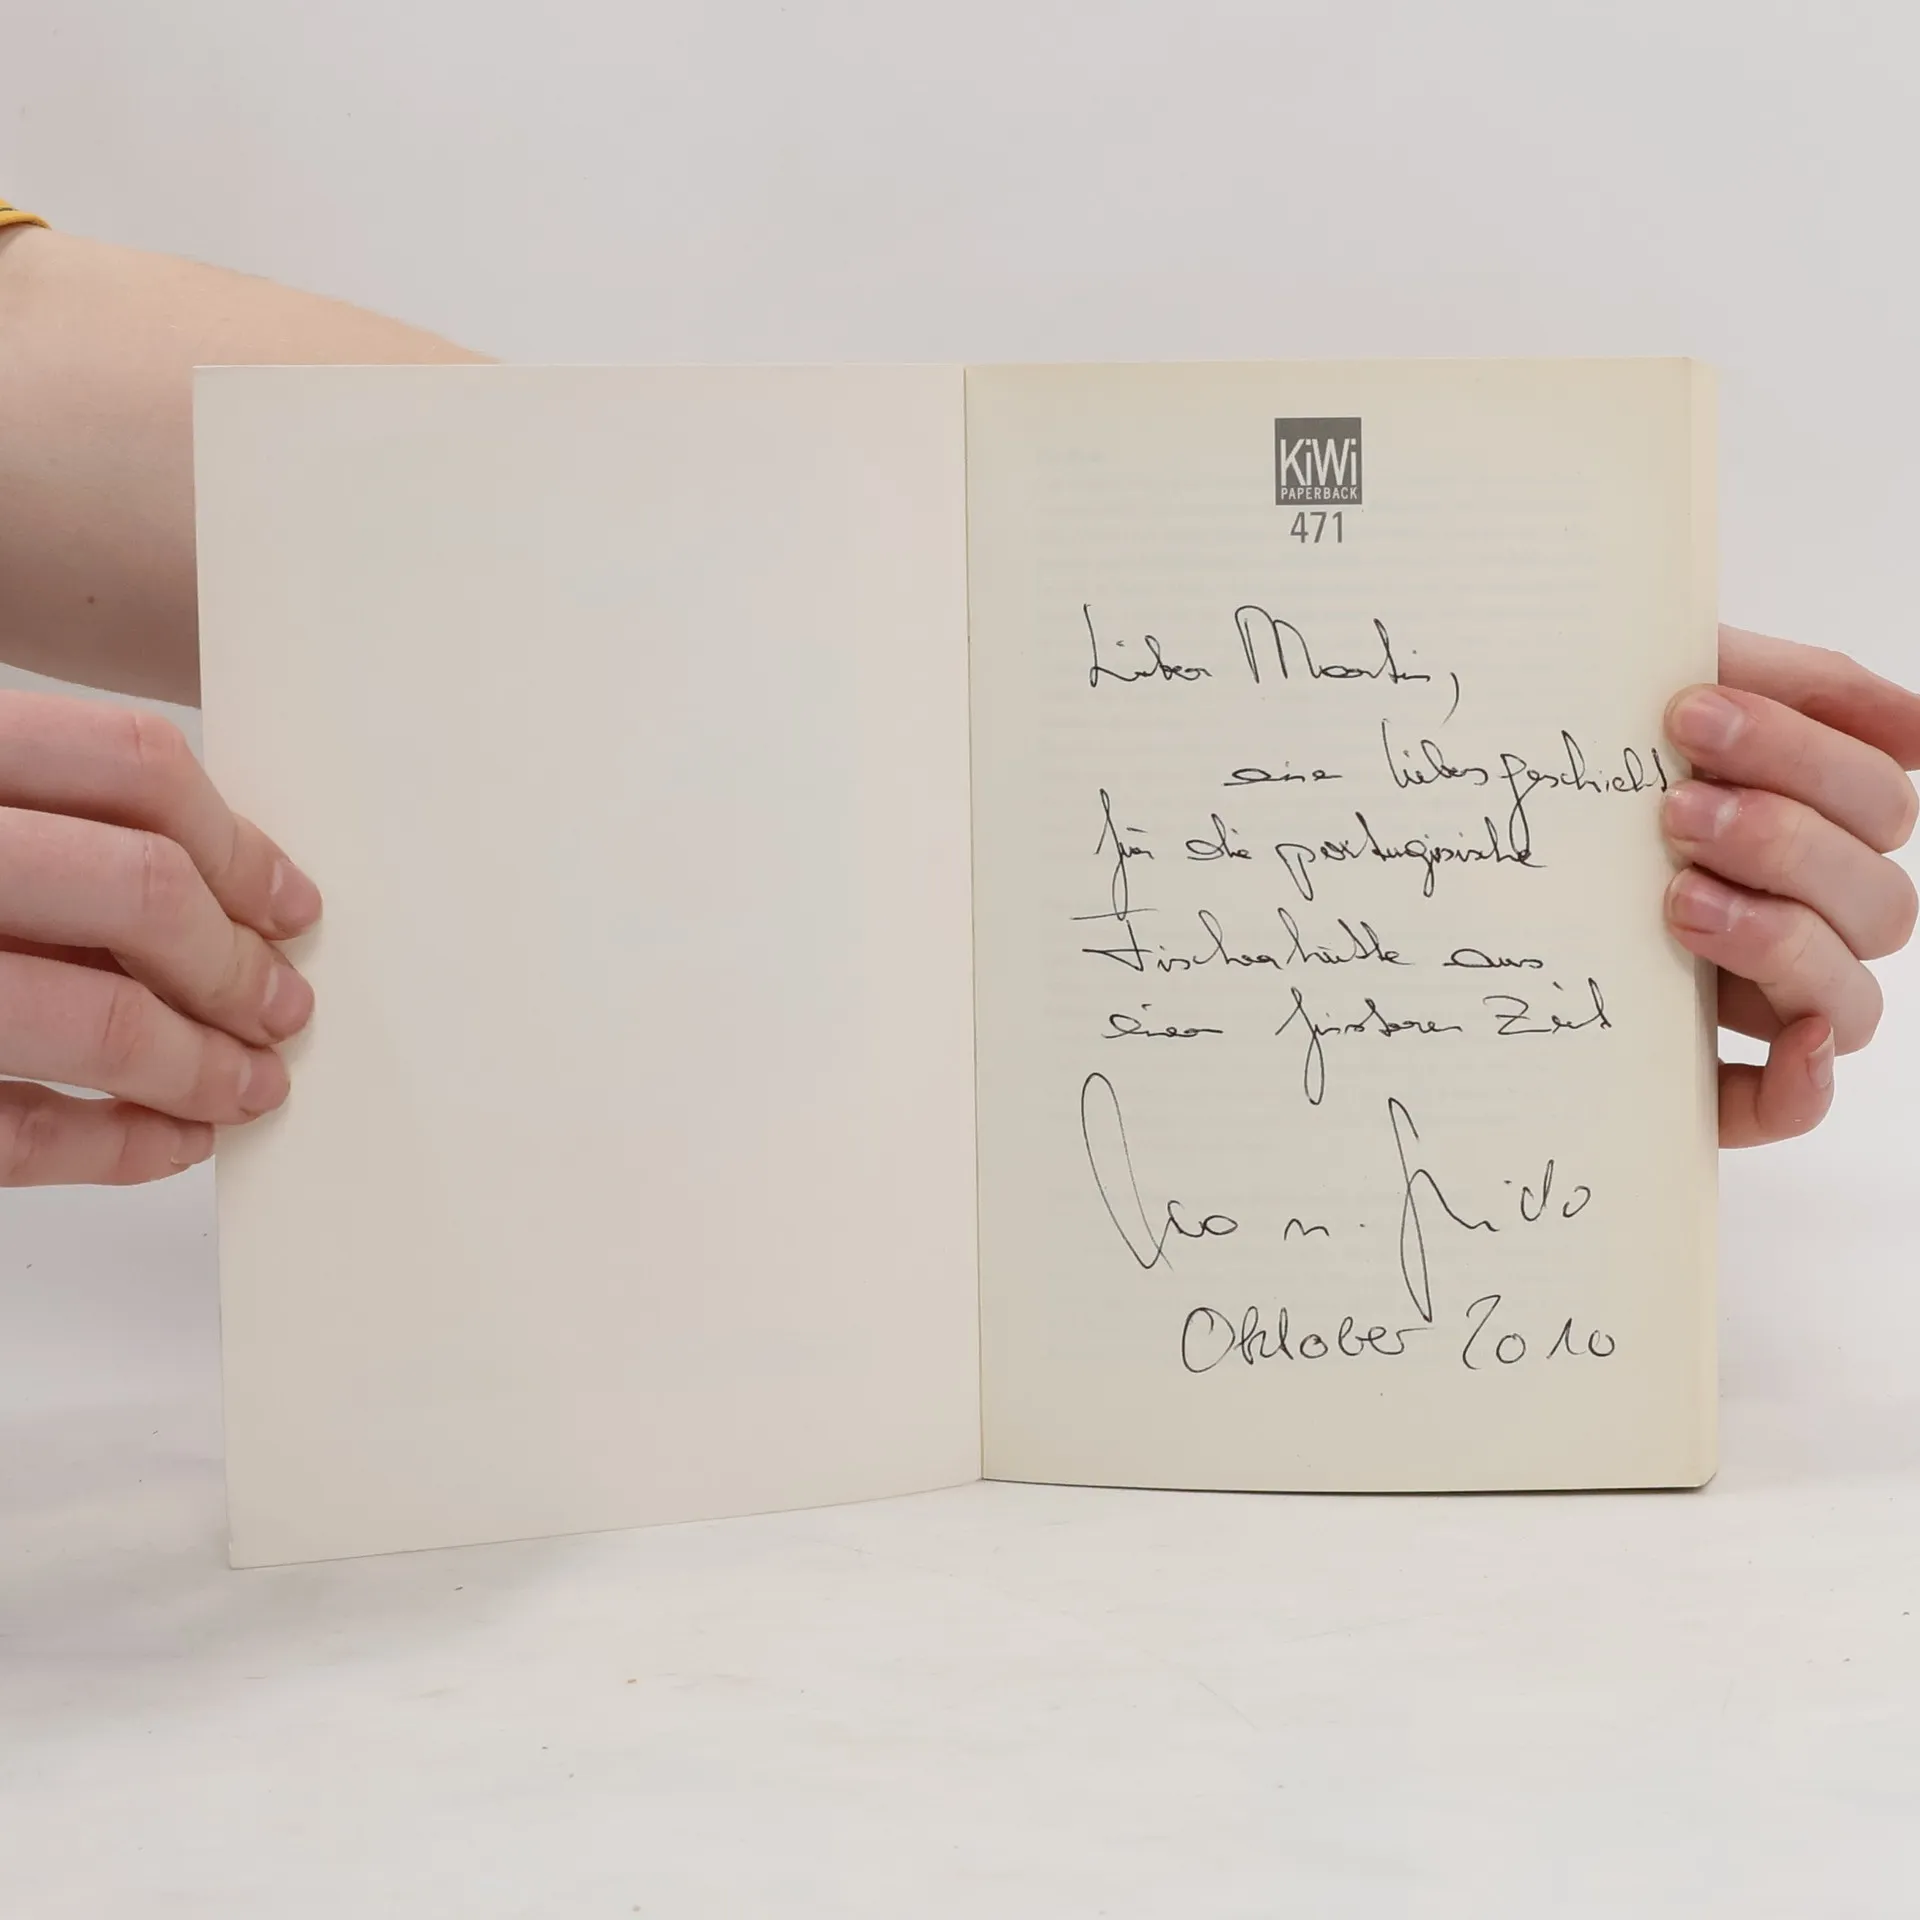 KiWi
PAPERBACK
471
Lieber Martin,
eine Liebesgeschicht
für die portugisische
Fischerhütte aus
einer finsteren Zeit
n.
Oktober 2010